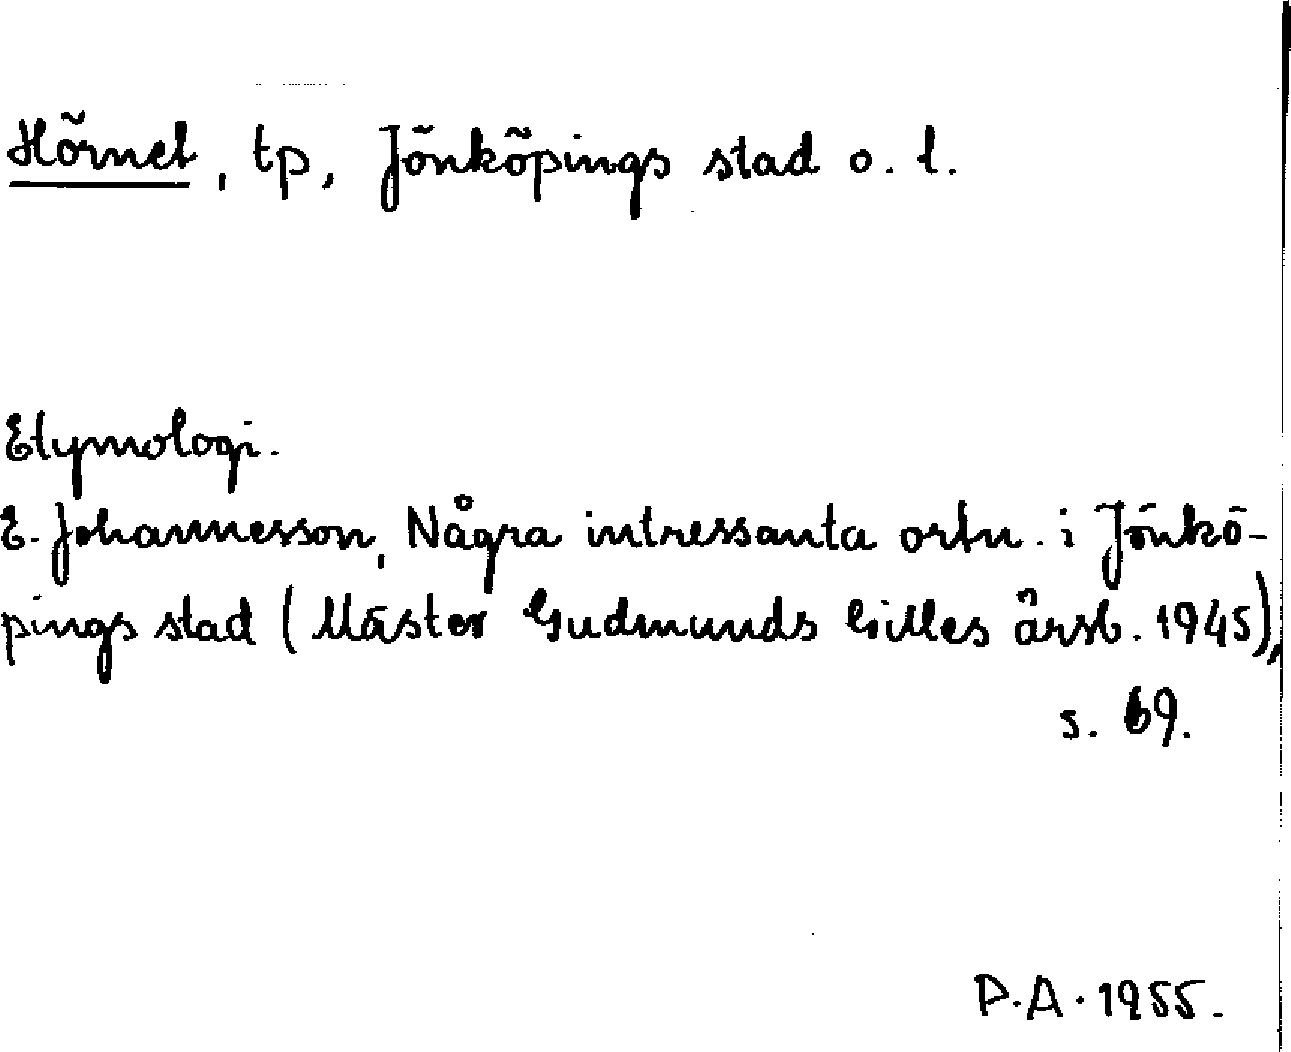 Hörnet, tp, Jönköpings stad o. l.
Etymologi.
E. Johannesson, Några intressanta ortn. i Jönkö-
pings stad (Mäster Gudmunds Gilles årsb. 1945),
s. 69.
P.A. 1955.